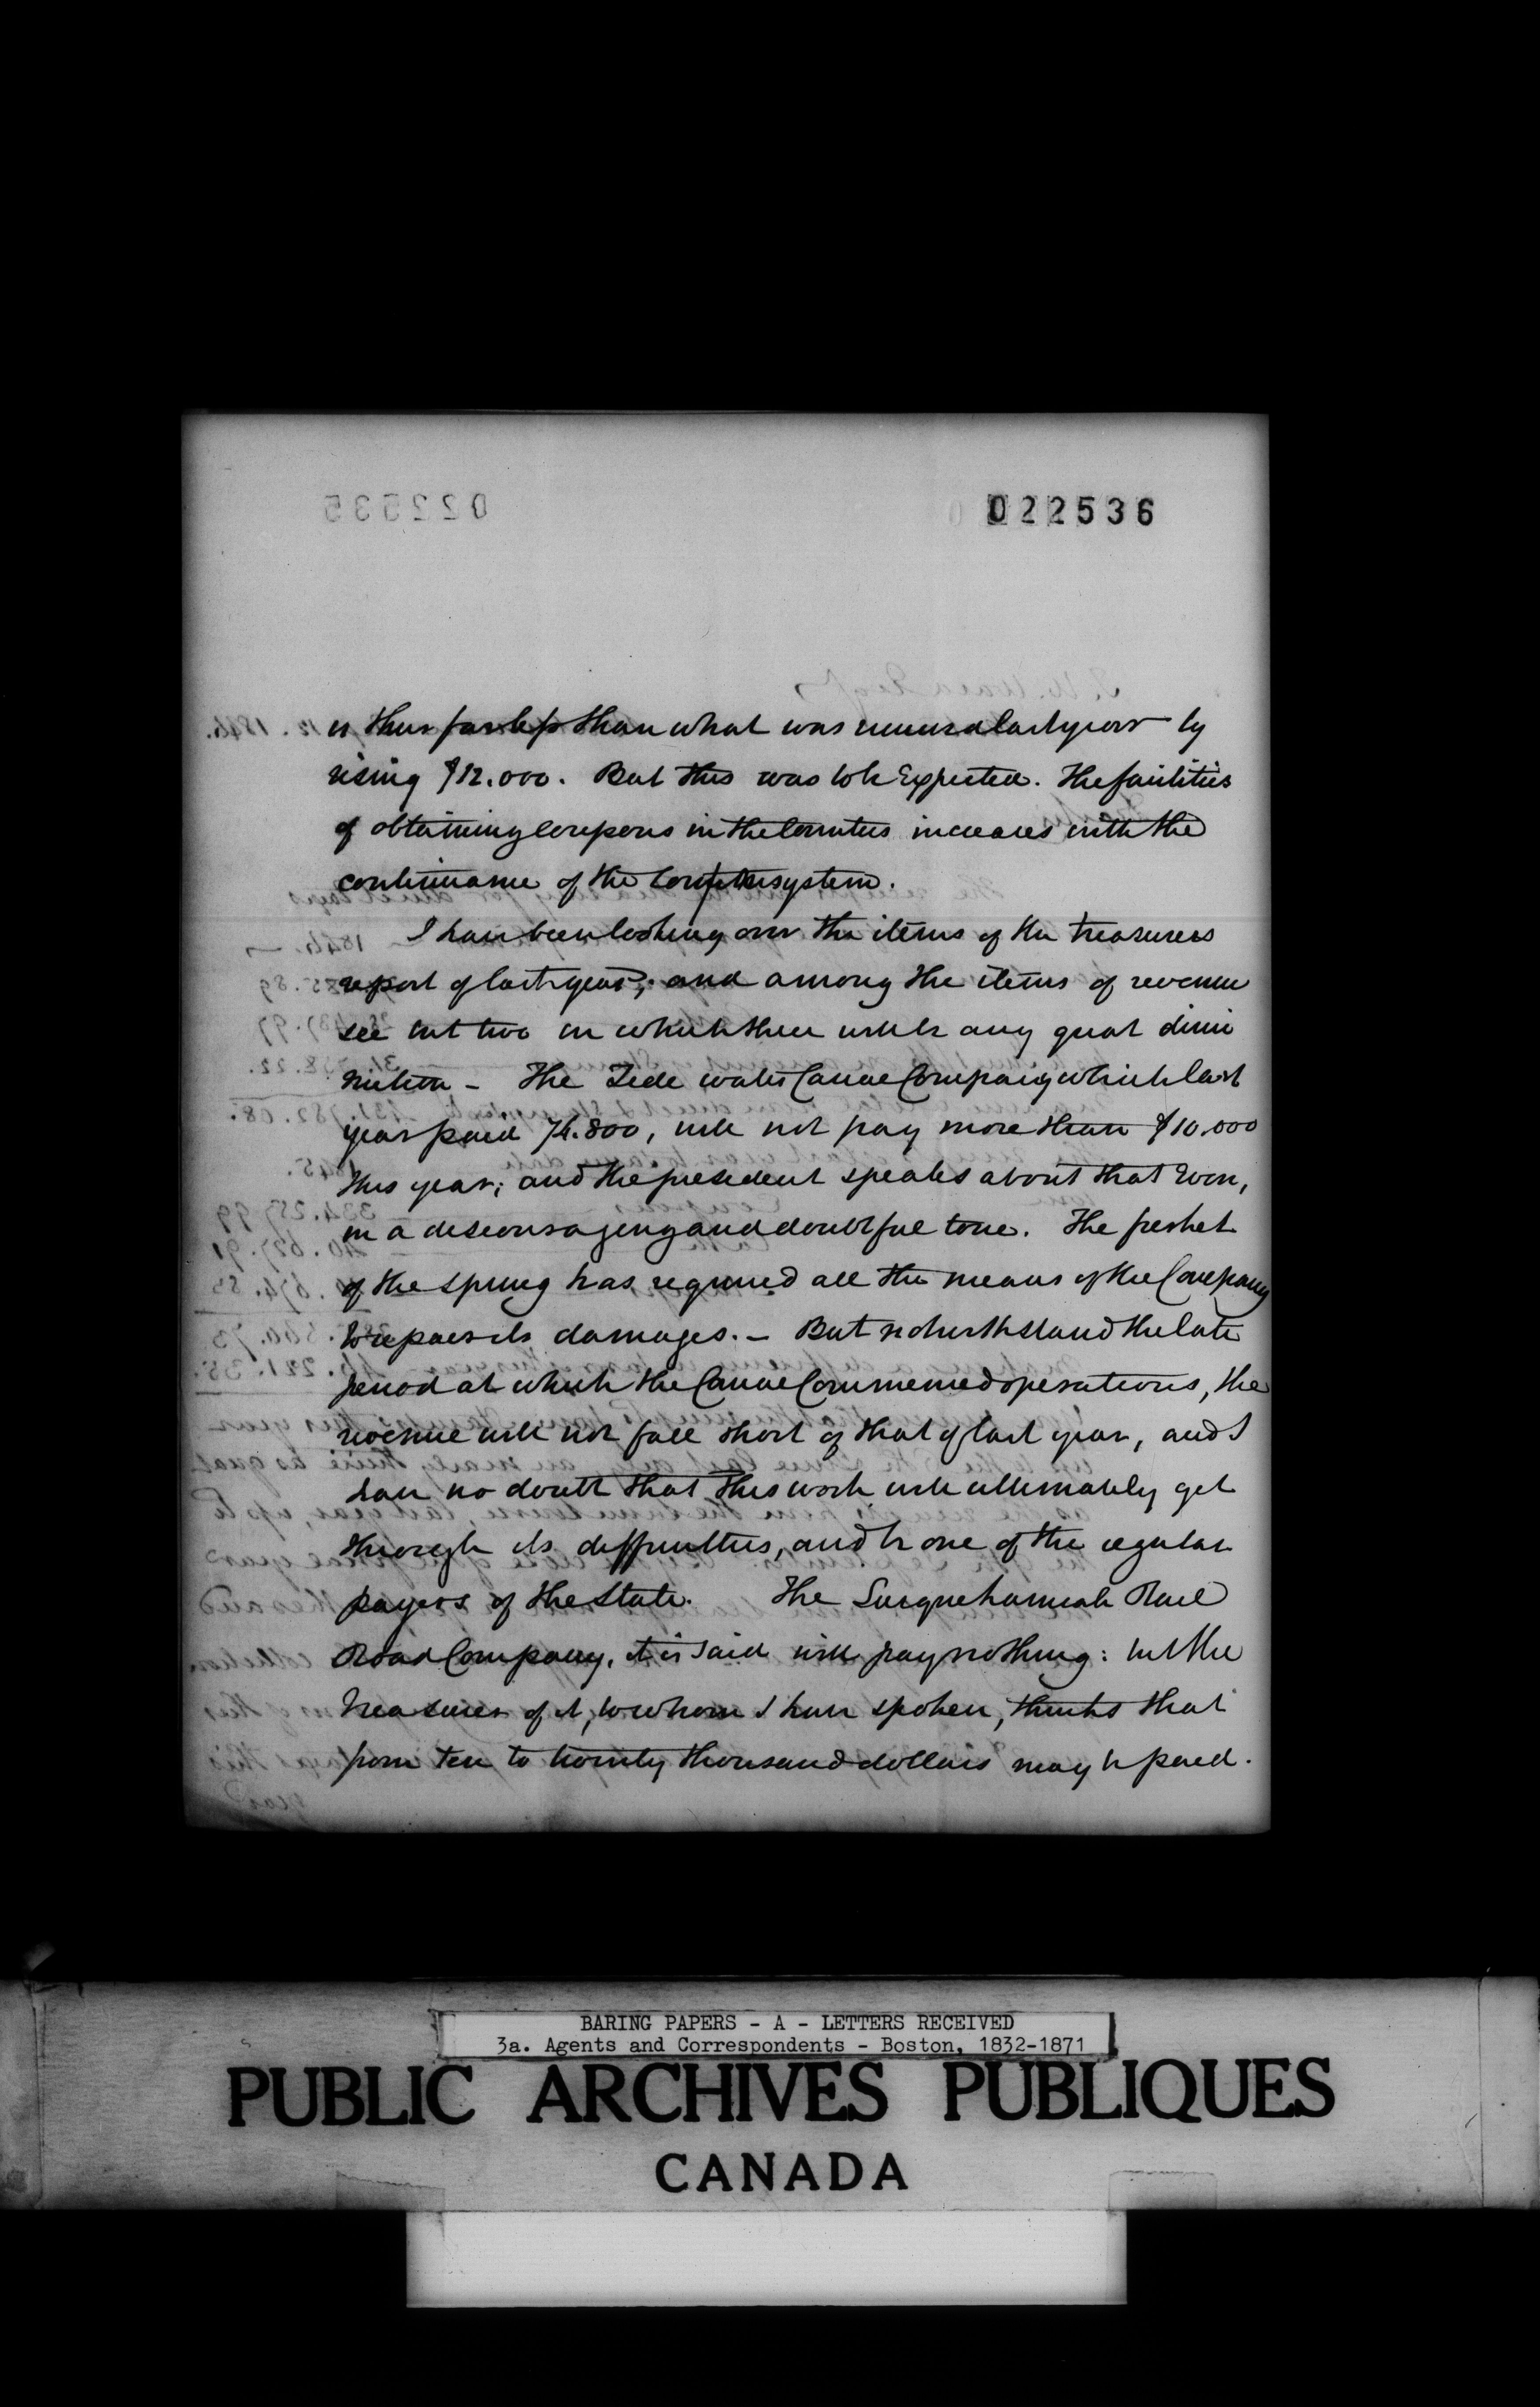 022536
is thus far less than what was received last year by
rising $12.000. But this was to be Expected. The facilities
of obtaining coupons in the counties increases with the
continuance of the system.
I have been looking over the items of the treasurers
report of last year; and among the items of revenue
see but two in which there will be any great dimi
nution - The Tide water Canal Company which last
year paid 74.800, will not pay more than $10.000
this year; and the president speaks about that Even,
in a discouraging and doubtful tone. The freshet
of the spring has required all the means of the Company
to repair its damages. - But notwithstand the late
period at which the Canal Commenced operations, the
revenue will not fall short of that of last year, and I
have no doubt that this work will ultimately get
through its difficulties, and be one of the regular
payers of the State. The Susquehannah Rail
Road Company, it is said will pay nothing: but the
Treasurer of it, to whom I have spoken, thinks that
from ten to twenty thousand dollars may be paid.
BARING PAPERS - A - LETTERS RECEIVED
3a. Agents and Correspondents - Boston, 1832-1871
PUBLIC ARCHIVES PUBLIQUES
CANADA